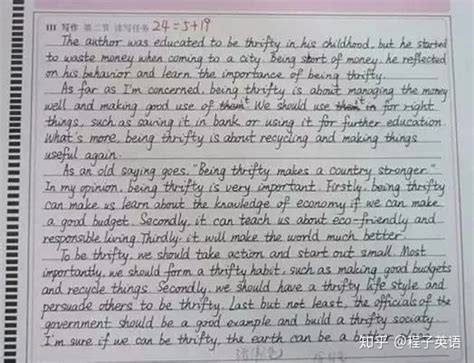 III 写作 第二节 读写任务 24=5+19
The author was educated to be thrifty in his childhood, but he started
to waste money when coming to a city. Being short of money, he reflected
on his behavior and learn the importance of being thrifty.
As far as I'm concerned, being thrifty is about managing the money
well and making good use of them it. We should use them it in for right
things, such as saving it in bank or using it for further education.
What's more, being thrifty is about recycling and making things
useful again.
As an old saying goes, "Being thrifty makes a country stronger."
In my opinion, being thrifty is very important. Firstly, being thrifty
can make us learn about the knowledge of economy if we can make
a good budget. Secondly, it can teach us about eco-friendly and
responsible living. Thirdly, it will make the world much better.
To be thrifty, we should take action and start out small. Most
importantly, we should form a thrifty habit, such as making good budgets
and recycle things. Secondly, we should have a thrifty life style and
persuade others to be thrifty. Last but not least, the officials of the
government should be a good example and build a thrifty society.
I'm sure if we can be thrifty, the earth can be a better place.
知乎 @程子英语